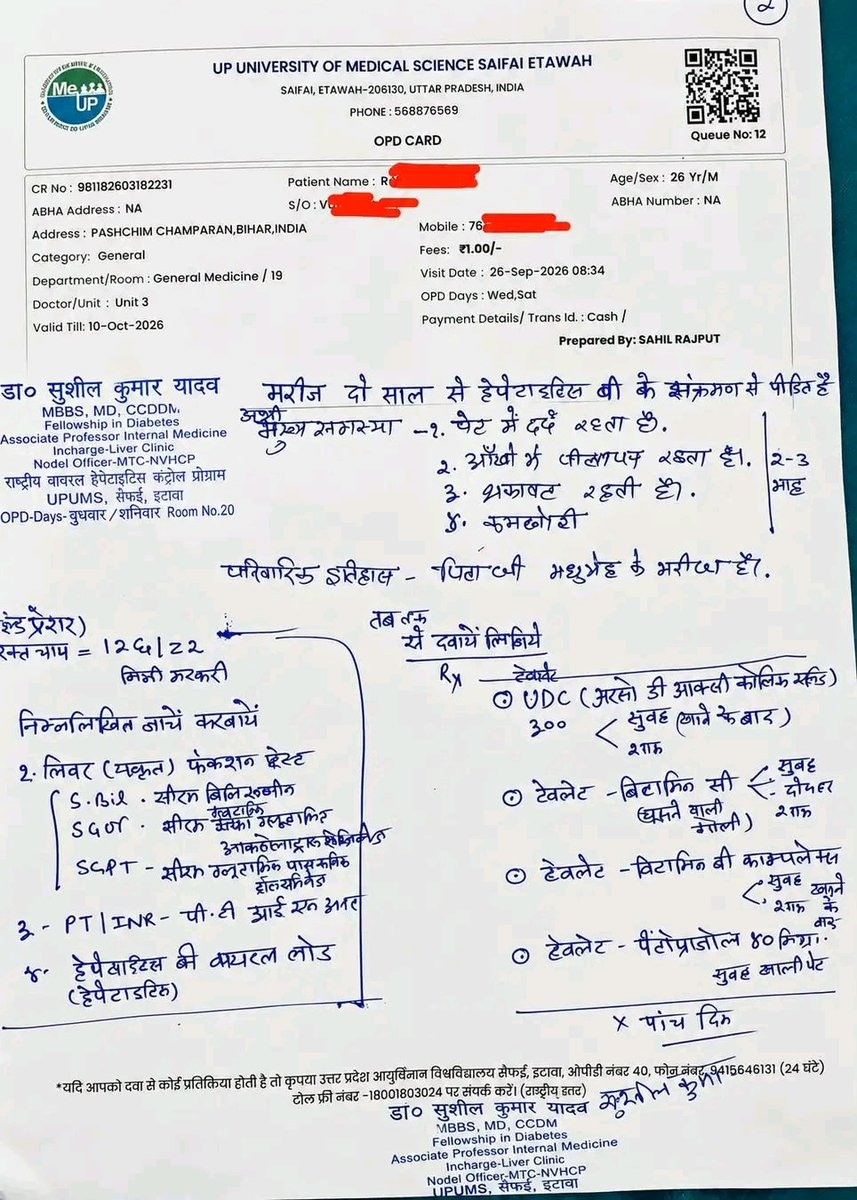 2
Me
UP
UP UNIVERSITY OF MEDICAL SCIENCE SAIFAI ETAWAH
SAIFAI, ETAWAH-206130, UTTAR PRADESH, INDIA
PHONE : 568876569
OPD CARD
Queue No: 12
CR No : 981182603182231
Patient Name : R
Age/Sex : 26 Yr/M
ABHA Address : NA
S/O : V
ABHA Number : NA
Address : PASHCHIM CHAMPARAN,BIHAR,INDIA
Mobile : 76
Category: General
Fees: ₹1.00/-
Department/Room : General Medicine / 19
Visit Date : 26-Sep-2026 08:34
Doctor/Unit : Unit 3
OPD Days : Wed,Sat
Valid Till: 10-Oct-2026
Payment Details/ Trans Id. : Cash /
Prepared By: SAHIL RAJPUT
डा० सुशील कुमार यादव
MBBS, MD, CCDDM
Fellowship in Diabetes
Associate Professor Internal Medicine
Incharge-Liver Clinic
Nodel Officer-MTC-NVHCP
राष्ट्रीय वायरल हेपेटाइटिस कंट्रोल प्रोग्राम
UPUMS, सैफई, इटावा
OPD-Days-बुधवार / शनिवार Room No.20
मरीज दो साल से हेपेटाइटिस बी के संक्रमण से पीडित है
अभी
मुख्य समस्या - १. पेट में दर्द रहता है.
२. आँखों में पीलापन रहता है।
३. थकावट रहती है।
४. कमजोरी
२-३
माह
पारिवारिक इतिहास - पिता जी मधुमेह के मरीज है।
रक्त चाप = १२६/८२
मिमी मरकरी
निम्नलिखित जाचें करवायें
२. लिवर (यकृत) फंक्शन टेस्ट
S.Bil. सीरम बिलिरूबीन
SGOT - सीरम
SGPT - सीरम ग्लूटामिक
३ - PT/INR - पी.टी आई एन आर
४. हेपेटाइटिस बी वायरल लोड
(हेपेटाइटिस)
तब तक
ये दवायें लिजिये
Rx
टेबलेट
UDC (अरसो डी आक्सी कोलिक एसिड)
३००
सुबह (खाने के बाद)
शाम
टेबलेट - विटामिन सी
(चूसने वाली
गोली)
सुबह
दोपहर
शाम
टेबलेट - विटामिन बी काम्पलेक्स
सुबह
शाम
खाने
के
बाद
टेबलेट - पैंटोप्राजोल ४० मिग्रा.
सुबह खाली पेट
x पांच दिन
*यदि आपको दवा से कोई प्रतिकिया होती है तो कृपया उत्तर प्रदेश आयुर्विनान विश्वविद्यालय सैफई, इटावा, ओपीडी नंबर 40, फोन नंबर, 9415646131 (24 घंटे)
टोल फ्री नंबर -18001803024 पर संपर्क करें। (राष्ट्रीय् डतर)
सुशील कुमार
डा० सुशील कुमार यादव
MBBS, MD, CCDM
Fellowship in Diabetes
Associate Professor Internal Medicine
Incharge-Liver Clinic
Nodel Officer-MTC-NVHCP
UPUMS, सैफई, इटावा